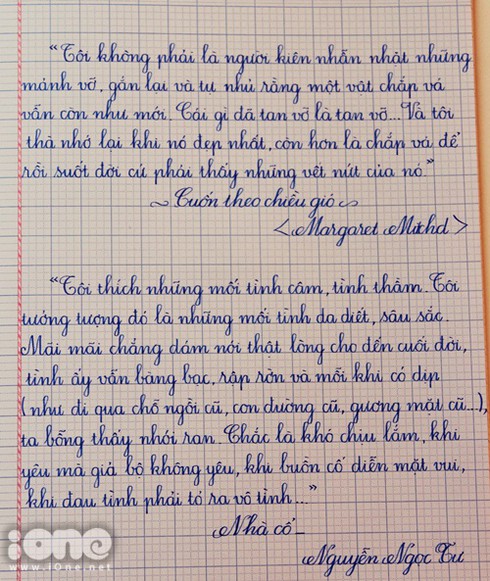 “Tôi không phải là người kiên nhẫn nhặt những
mảnh vỡ, gắn lại và tự nhủ rằng một vật chắp vá
vẫn còn như mới. Cái gì đã tan vỡ là tan vỡ...Và tôi
thà nhớ lại khi nó đẹp nhất, còn hơn là chắp vá để
rồi suốt đời cứ phải thấy những vết nứt của nó.”
~ Cuốn theo chiều gió ~
<Margaret Mitchd>
“Tôi thích những mối tình câm, tình thầm. Tôi
tưởng tượng đó là những mối tình da diết, sâu sắc.
Mãi mãi chẳng dám nói thật lòng cho đến cuối đời,
tình ấy vẫn bàng bạc, rập rờn và mỗi khi có dịp
(như đi qua chỗ ngồi cũ, con đường cũ, gương mặt cũ...),
ta bỗng thấy nhói ran. Chắc là khó chịu lắm, khi
yêu mà giả bộ không yêu, khi buồn cố diễn mặt vui,
khi đau tình phải tỏ ra vô tình...”
Nhà cổ_
Nguyễn Ngọc Tư
iOne
www.iOne.net